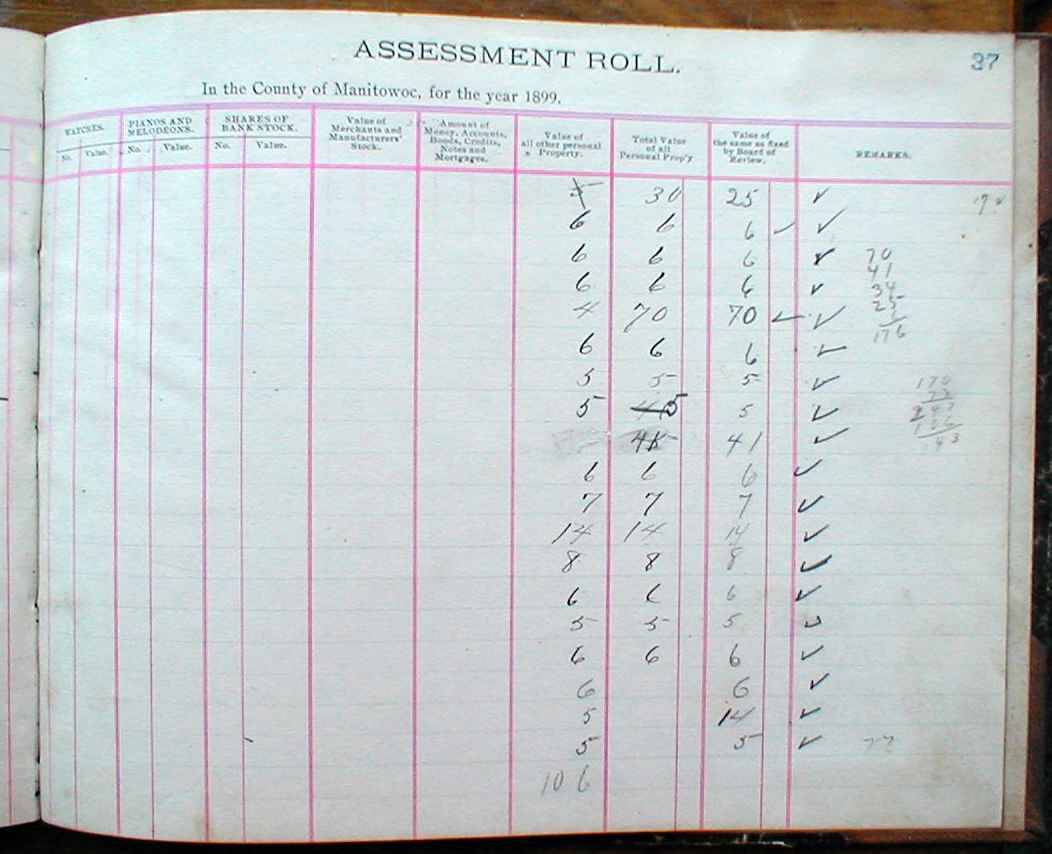 37
ASSESSMENT ROLL.
In the County of Manitowoc, for the year 1899.
WATCHES. PIANOS AND MELODEONS. SHARES OF BANK STOCK. Value of Merchants and Manufacturers' Stock. Amount of Money, Accounts, Bonds, Credits, Notes and Mortgages. Value of all other personal Property. Total Value of all Personal Prop'y Value of the same as fixed by Board of Review. REMARKS.
No. Value. No. Value. No. Value.
5 30 25 ✓
6 6 6 ✓ ✓
6 6 6 ✓ 70
41
6 6 6 ✓ 34
25
4 70 70 ✓ ✓
176
6 6 6 ✓
5 5 5 ✓ 170
5 5 5 ✓
45 41 ✓
6 6 6 ✓
7 7 7 ✓
14 14 14 ✓
8 8 8 ✓
6 6 6 ✓
5 5 5 ✓
6 6 6 ✓
6 6 ✓
5 14 ✓
5 5 ✓
106